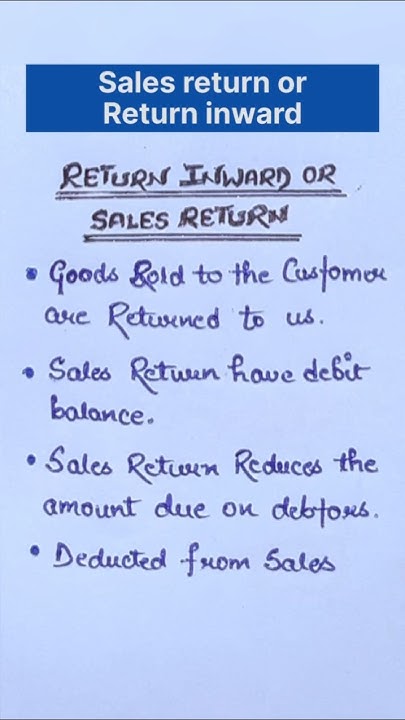 Sales return or
Return inward
RETURN INWARD OR
SALES RETURN
• Goods Sold to the Customer
are Returned to us.
• Sales Return have debit
balance.
• Sales Return Reduces the
amount due on debtors.
• Deducted from Sales